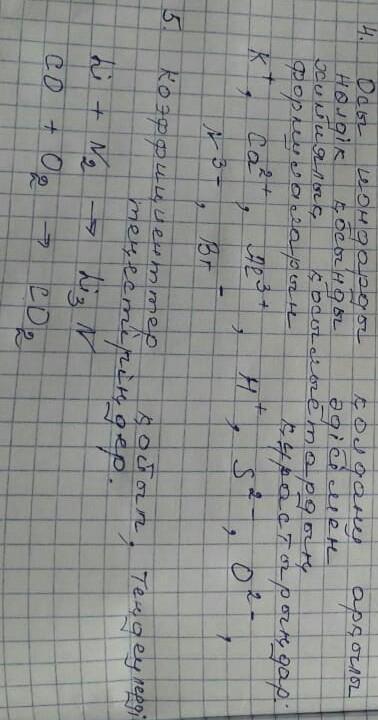 4. Осы иондарды қолдану арқылы
нөлдік қосынды әдісімен
химиялық қосылыстардың
формулаларын құрастырыңдар:
K⁺, Ca²⁺, Al³⁺, H⁺, S²⁻, O²⁻,
N³⁻, Br⁻
5. Коэффициенттер қойып, теңдеулерді
теңестіріңдер.
Li + N₂ → Li₃N
CO + O₂ → CO₂